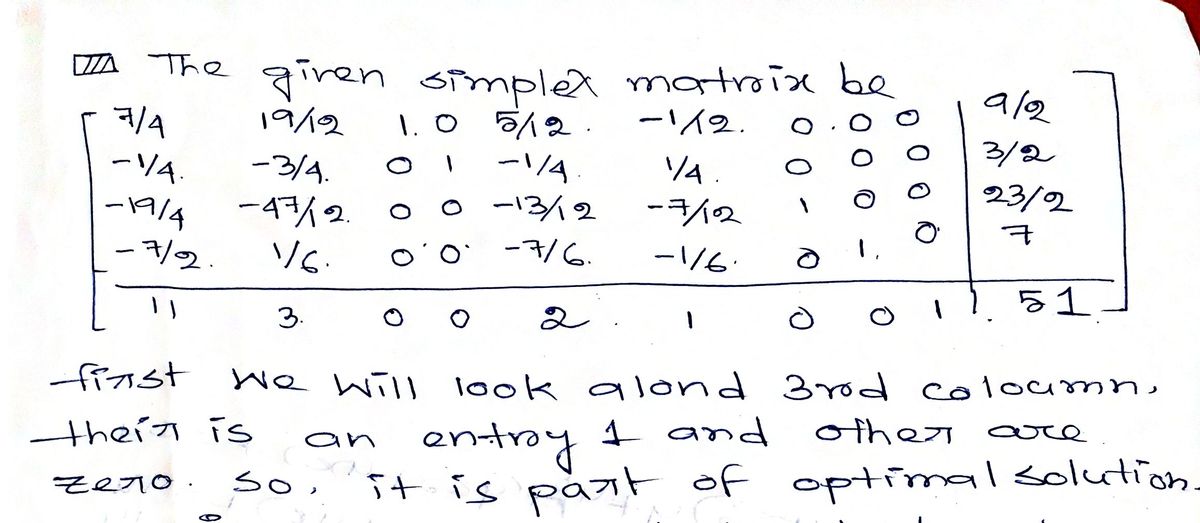 The given simplex matrix be
7/4 19/12 1. 0 5/12. -1/12. 0. 0 0 | 9/2
-1/4. -3/4. 0 1 -1/4. 1/4. 0 0 0 | 3/2
-19/4 -47/12. 0 0 -13/12 -7/12 1 0 0 | 23/2
-7/2. 1/6. 0 0 -7/6. -1/6. 0 1. 0 | 7
11 3. 0 0 2. 1 0 0 1 | 51
first we will look alond 3rd coloumn,
their is an entry 1 and other are
zero. so, it is part of optimal solution.